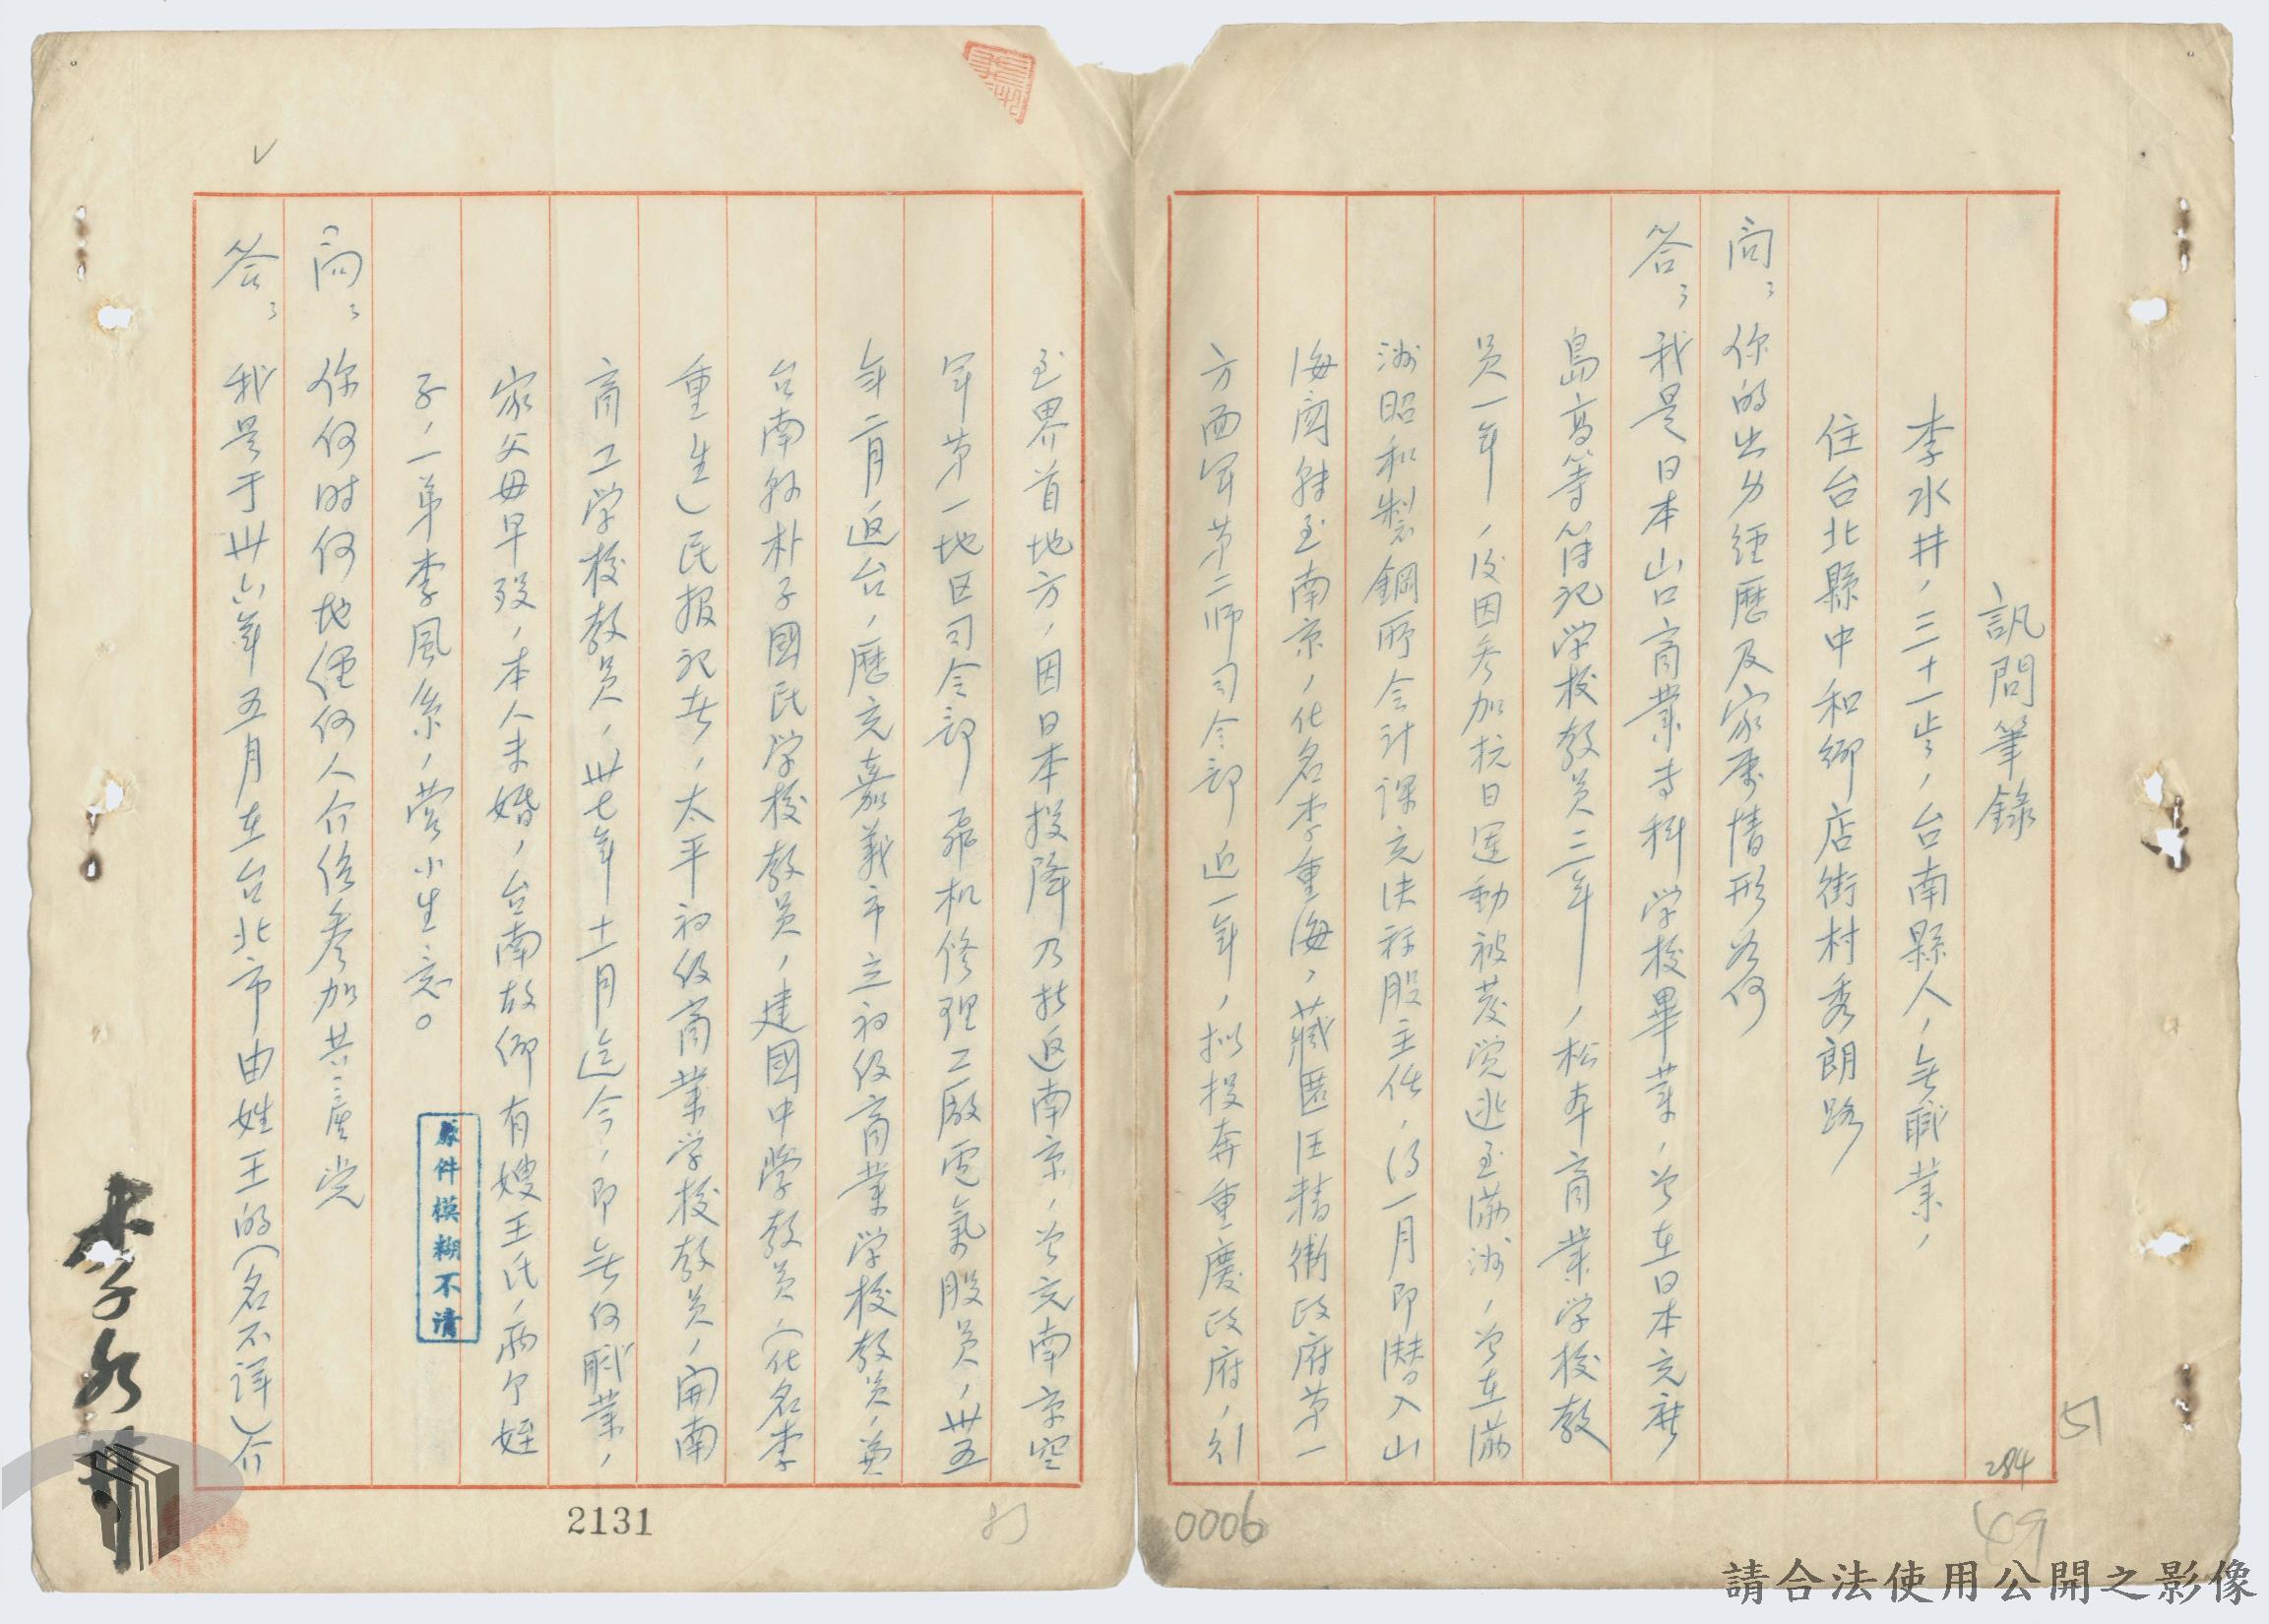 訊問筆錄
李水井，三十一歲，台南縣人，無職業，
住台北縣中和鄉店街村秀朗路
問：你的出身經歷及家庭情形如何
答：我是日本山口商業専科学校畢業，曾在日本充廣
島高等簿記学校教员三年，松本商業学校教
员一年，後因参加抗日運動被发覚逃至滿洲，曾在滿
洲昭和製鋼所会计課充決算股主任，約一月即潜入山
海関転至南京，化名李重海，藏匿汪精衛政府第一
方面軍第二師司令部近一年，拟投奔重慶政府，行
至界首地方，因日本投降乃折返南京，曾充南京空
军第一地区司令部飛机修理工廠電氣股员，卅五
年二月返台，歷充嘉義市立初级商業学校教员，兼
台南縣朴子國民学校教员，建國中學教员，（化名李
重生）民报記者，太平初级商業学校教员，開南
商工学校教员，卅七年十一月迄今，即無何職業，
家父母早歿，本人未婚，台南故鄉有嫂王氏，兩个姪
子，一弟李風条，营小生意。
問：你何时何地经何人介绍参加共產党
答：我是于卅六年五月在台北市由姓王的（名不詳）介
原件模糊不清
李水井
51
284
49
0006
2131
請合法使用公開之影像